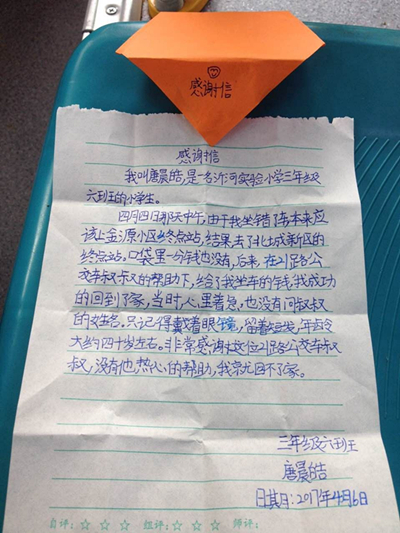 感谢信
感谢信
我叫唐晨皓,是一名沂河实验小学三年级
六班的小学生。
四月四日那天中午,由于我坐错了车,本来应
该上金源小区终点站,结果去了北城新区的
终点站,口袋里一分钱也没有,后来,在21路公
交车叔叔的帮助下,给了我坐车的钱,我成功
的回到了家,当时,心里着急,也没有问叔叔
的姓名。只记得戴着眼镜,留着短发,年龄
大约四十岁左右。非常感谢这位21路公交车叔
叔,没有他热心的帮助,我就回不了家。
三年级六班
唐晨皓
日期:2017年4月6日
自评:☆ ☆ ☆ 组评:☆ ☆ ☆ 师评: